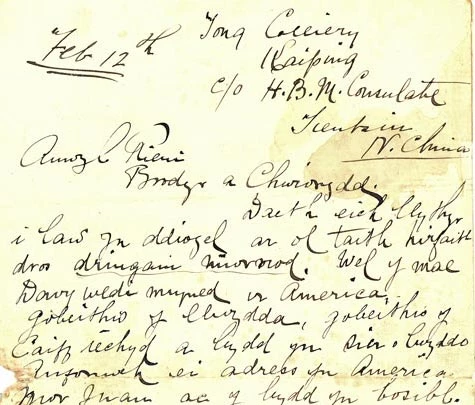 Feb 12th
Tong Colliery
Kaiping
c/o H.B.M. Consulate
Tientsin
N. China
Anwyl Rieni
Brodyr a Chwiorydd.
Daeth eich llythyr
i law yn ddiogel ar ol taith hirfaith
dros miloedd. Wel y mae
Davy wedi myned i'r America,
gobeithio y llwydda, gobeithio y
caiff iechyd a bydd yn siwr o lwyddo
Anfonwch ei adress yn America
mor fuan ac y bydd yn bosibl.